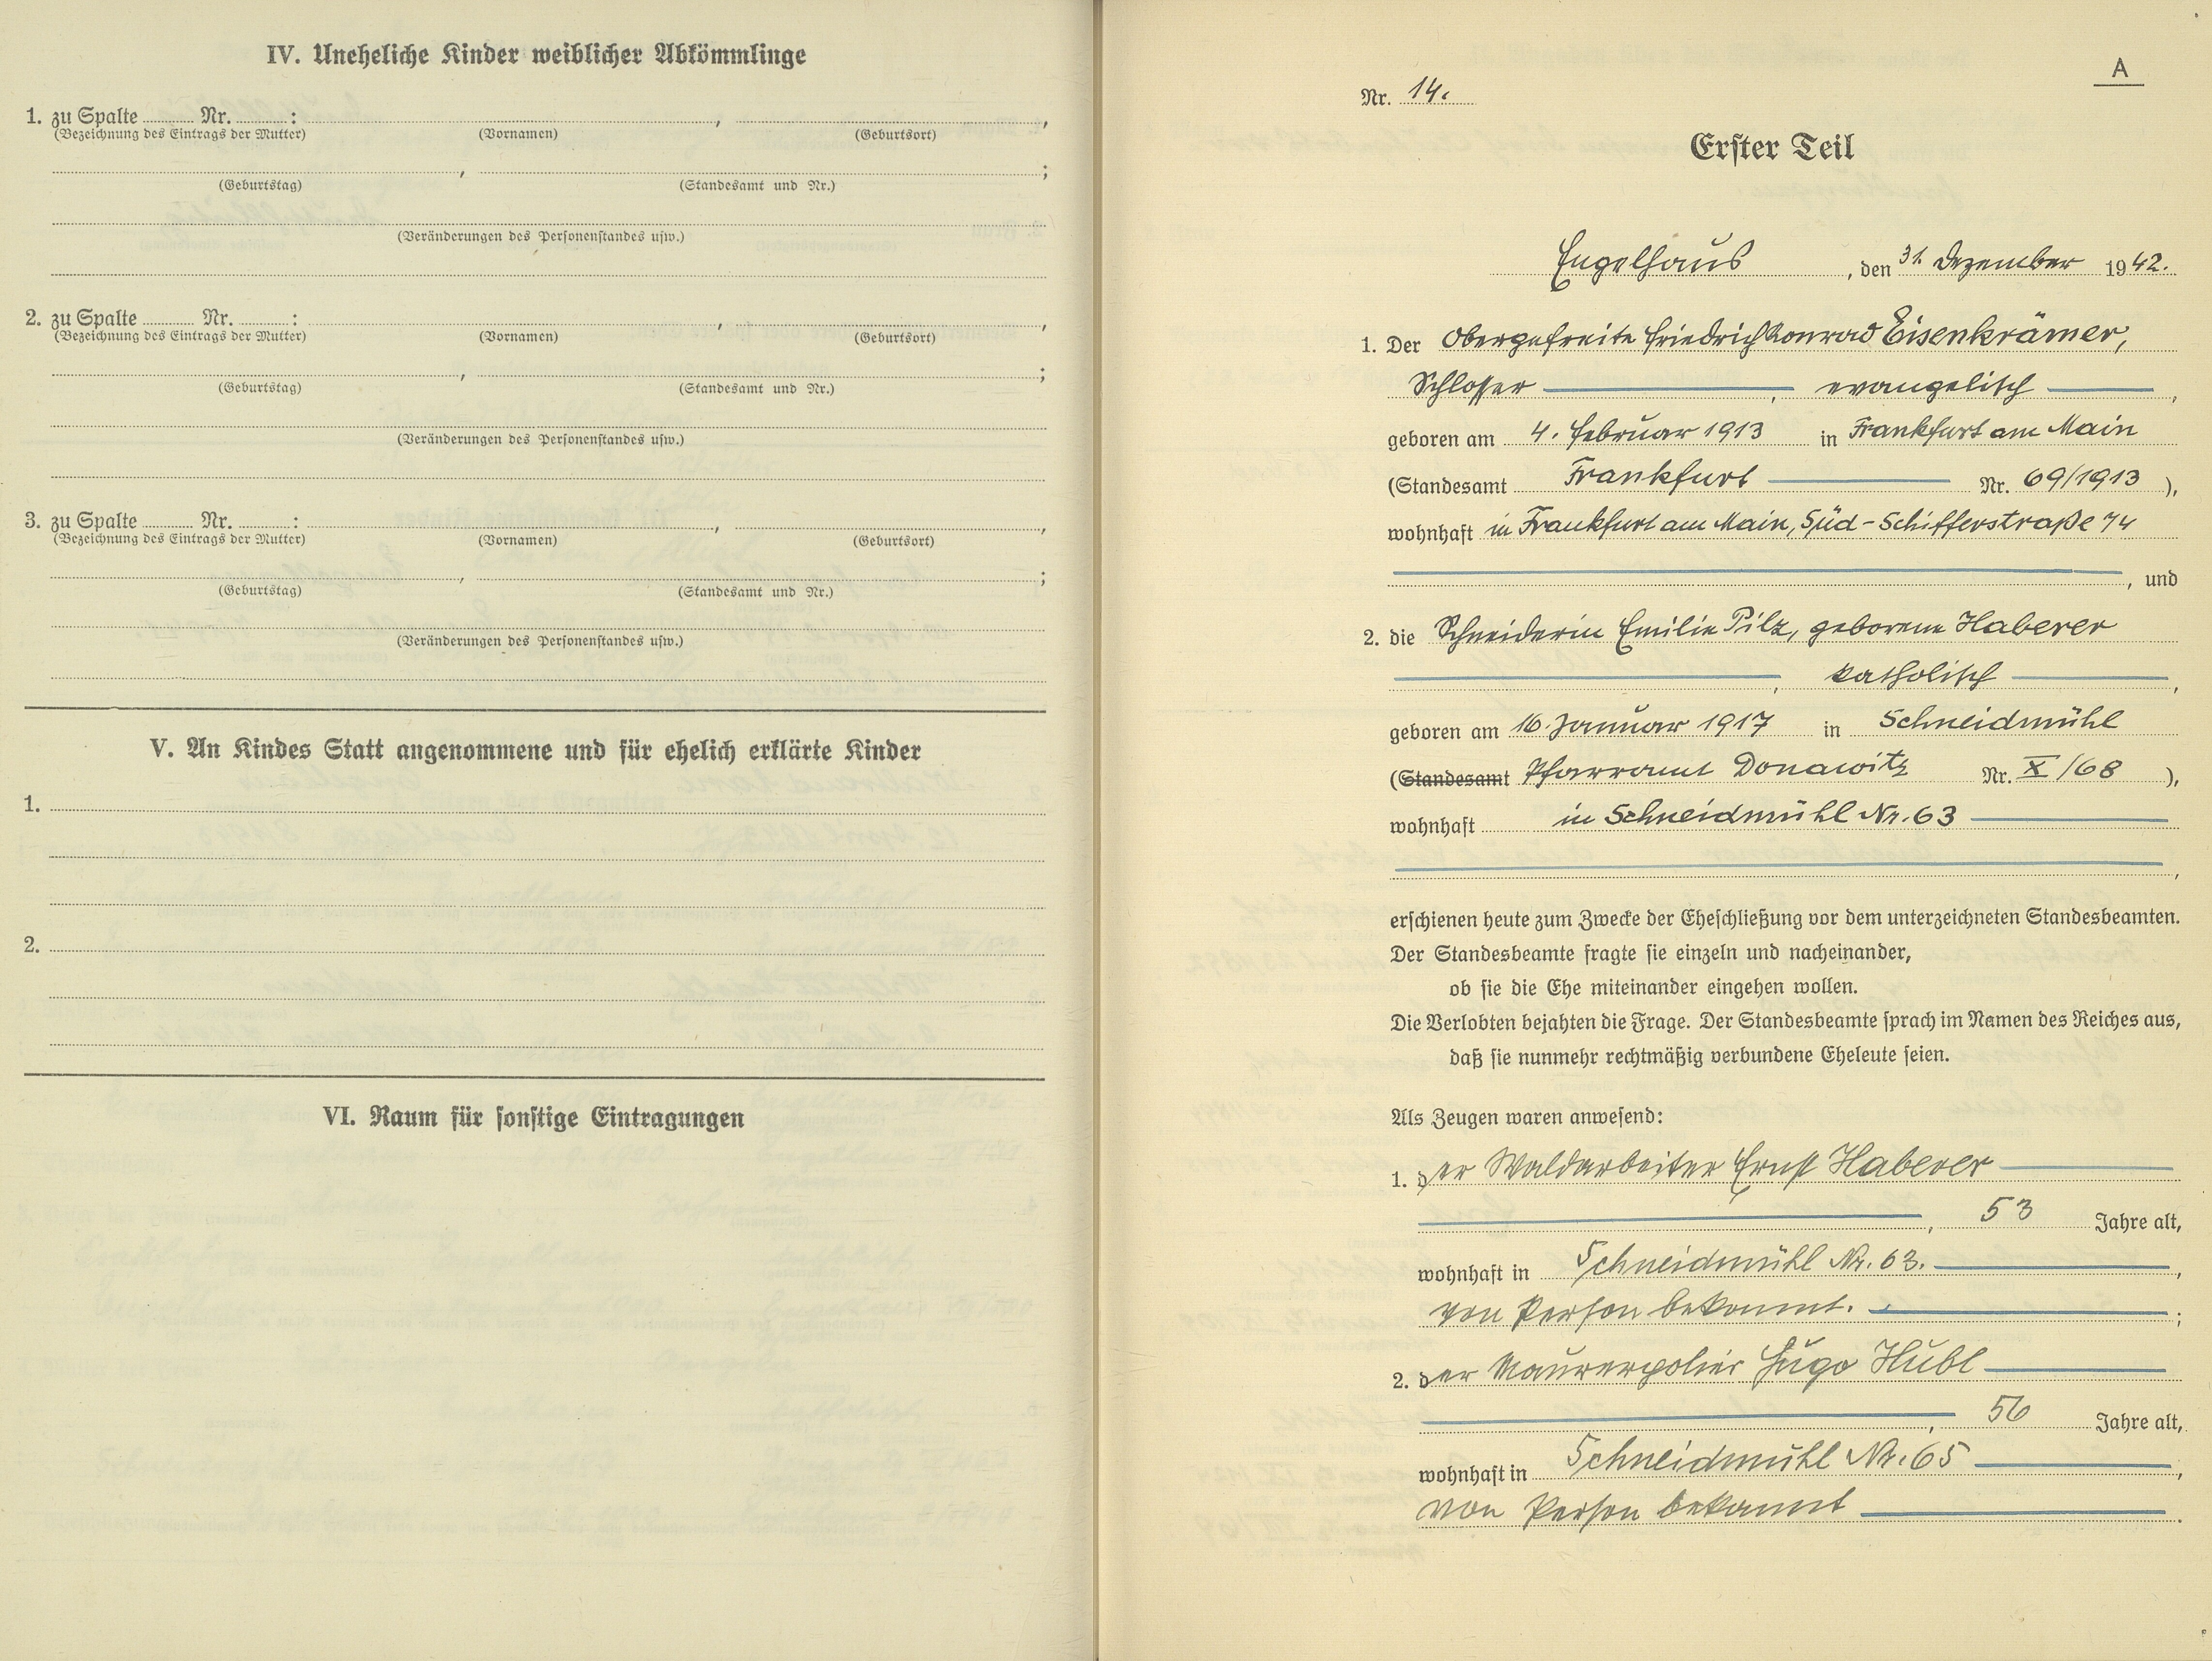 IV. Uneheliche Kinder weiblicher Abkömmlinge
1. zu Spalte ........ Nr. ........ : , ,
(Bezeichnung des Eintrags der Mutter) (Vornamen) (Geburtsort)
, ;
(Geburtstag) (Standesamt und Nr.)
(Veränderungen des Personenstandes usw.)
2. zu Spalte ........ Nr. ........ : , ,
(Bezeichnung des Eintrags der Mutter) (Vornamen) (Geburtsort)
, ;
(Geburtstag) (Standesamt und Nr.)
(Veränderungen des Personenstandes usw.)
3. zu Spalte ........ Nr. ........ : , ,
(Bezeichnung des Eintrags der Mutter) (Vornamen) (Geburtsort)
, ;
(Geburtstag) (Standesamt und Nr.)
(Veränderungen des Personenstandes usw.)
V. An Kindes Statt angenommene und für ehelich erklärte Kinder
1.
2.
VI. Raum für sonstige Eintragungen
A
Nr. 14.
Erster Teil
Engelhaus, den 31. Dezember 1942.
1. Der Obergefreite Friedrich Konrad Eisenkrämer,
Schlosser, evangelisch,
geboren am 4. Februar 1913 in Frankfurt am Main
(Standesamt Frankfurt Nr. 69/1913),
wohnhaft in Frankfurt am Main, Süd-Schifferstraße 74
, und
2. die Schneiderin Emilie Pilz, geborene Haberer
, katholisch,
geboren am 16. Januar 1917 in Schneidmühl
(Standesamt Pfarramt Donawitz Nr. X/68),
wohnhaft in Schneidmühl Nr. 63
,
erschienen heute zum Zwecke der Eheschließung vor dem unterzeichneten Standesbeamten.
Der Standesbeamte fragte sie einzeln und nacheinander,
ob sie die Ehe miteinander eingehen wollen.
Die Verlobten bejahten die Frage. Der Standesbeamte sprach im Namen des Reiches aus,
daß sie nunmehr rechtmäßig verbundene Eheleute seien.
Als Zeugen waren anwesend:
1. der Waldarbeiter Ernst Haberer
, 53 Jahre alt,
wohnhaft in Schneidmühl Nr. 63.,
von Person bekannt. ;
2. der Maurerpolier Hugo Hubl
, 56 Jahre alt,
wohnhaft in Schneidmühl Nr. 65,
von Person bekannt.